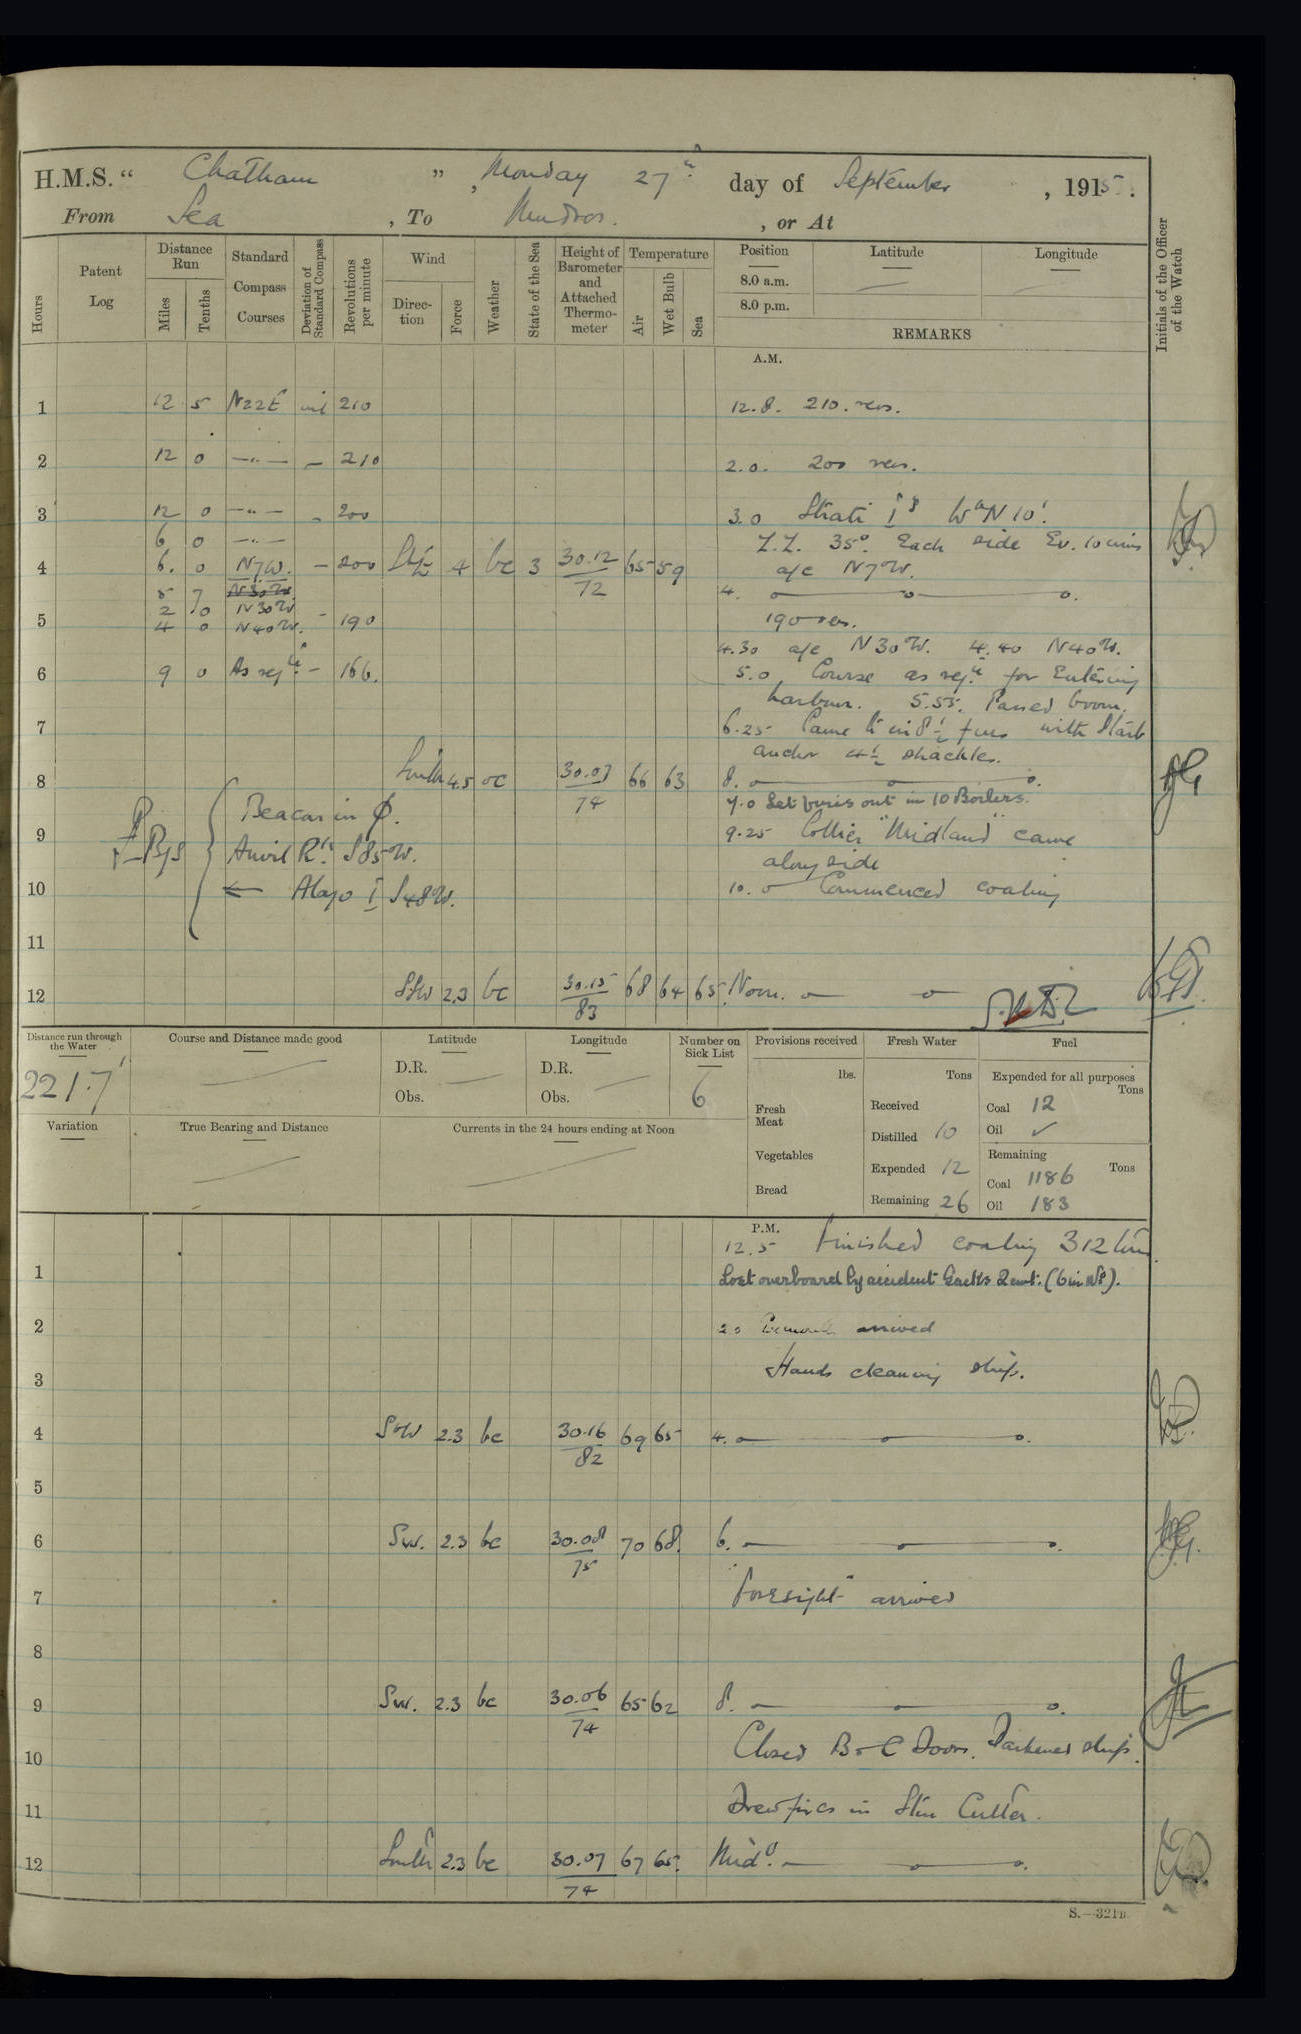 H.M.S. " Chatham " , Monday 27th day of September , 1915 .
From Sea , To Mudros. , or At
Hours
Patent Log
Distance Run
Miles
Tenths
Standard Compass Courses
Deviation of Standard Compass
Revolutions per minute
Wind
Direction
Force
Weather
State of the Sea
Height of Barometer and Attached Thermometer
Temperature
Air
Wet Bulb
Sea
Position
Latitude
Longitude
8.0 a.m.
8.0 p.m.
REMARKS
Initials of the Officer of the Watch
A.M.
1 12 5 N22E nil 210 12.8. 210. revs.
2 12 0 —"— – 210 2.0. 200 revs.
3 12 0 —"— – 200 3.0 Strati Is W N 10'.
6 0 —"— Z.Z. 35° Each side Ev. 10 mins
4 6. 0 N7W. – 200 4 bc 3 30.12 65 59 a/c N7W.
5 7 N30W. 72 4.
2 0 N30W
5 4 0 N40W. – 190 190 revs.
4.30 a/c N30W. 4.40 N40W.
6 9 0 As reqd. – 166. 5.0 Course as reqd for Entering
harbour. 5.55. Passed boom.
7 6.25 Came to in 8½ fms with Starb
anchor 4½ shackles.
8 South 4.5 oc 30.07 66 63 8.
74 7.0 Let fires out in 10 Boilers.
Beacon in ϕ.
9 Anvil Rk. S85W. 9.25 Collier "Midland" came
alongside
10 Alogo I S48W. 10.0 Commenced coaling
11
12 SSW 2.3 bc 30.15 68 64 65 Noon.
83
Distance run through the Water
221.7'
Course and Distance made good
Latitude
D.R.
Obs.
Longitude
D.R.
Obs.
Number on Sick List
6
Provisions received
lbs.
Fresh Meat
Vegetables
Bread
Fresh Water
Tons
Received
Distilled 10
Expended 12
Remaining 26
Fuel
Expended for all purposes
Tons
Coal 12
Oil ✓
Remaining
Tons
Coal 1186
Oil 183
Variation
True Bearing and Distance
Currents in the 24 hours ending at Noon
P.M.
12.5 Finished coaling 312 tons
1 Lost overboard by accident Sacks 2 cwt. (6 in No).
2 2.0 arrived
3 Hands cleaning ship.
4 SW 2.3 bc 30.16 69 65 4.
82
5
6 SW. 2.3 bc 30.08 70 68. 6.
75
7 "Foresight" arrived
8
9 SW. 2.3 bc 30.06 65 62 8.
74
10 Closed B & C Doors. Darkened ship.
11 Drew fires in Stm Cutter.
12 South 2.3 bc 30.07 67 65. Midt.
74
S.—321B.